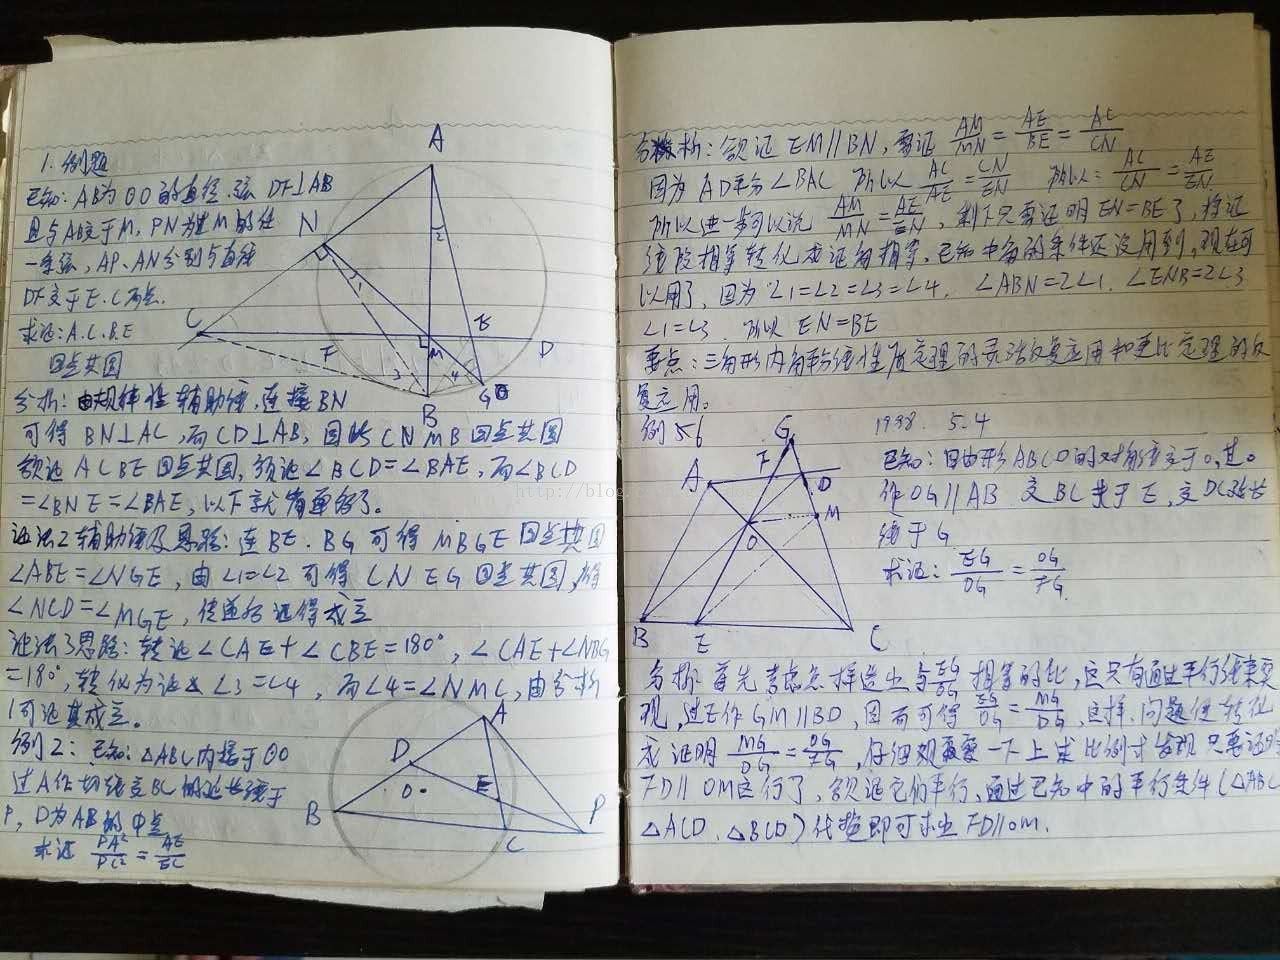 1. 例题
已知: AB为⊙O的直径.弦 DF⊥AB
且与AB交于M, PN为过M的任
一条弦, AP、AN分别与直线
DF交于E.C两点.
求证: A.C.B.E
四点共圆
A
N
1
2
C
F
M
E
D
3
4
B
G
分析: 由规律性辅助线,连接BN
可得 BN⊥AC,而CD⊥AB, 因此 CNMB四点共圆
欲证 ACBE四点共圆, 须证∠BCD=∠BAE, 而∠BCD
=∠BNE=∠BAE, 以下就简单多了。
证法2辅助线及思路: 连BE、BG 可得 MBGE四点共圆
∠ABE=∠NGE, 由∠1=∠2 可得 CNEG四点共圆, 得
∠NCD=∠MGE, 传递后证得成立
证法3思路: 转证∠CAE+∠CBE=180°, ∠CAE+∠NBG
=180°, 转化为证 ∠3=∠4, 而∠4=∠NMC, 由分析
1可证其成立。
例2: 已知: △ABC内接于⊙O
过A作切线交BC的延长线于
P, D为AB的中点
求证 PA²/PC² = AE/EC
A
D
O
E
B
C
P
分析: 欲证 EM∥BN, 需证 AM/MN = AE/BE = AC/CN
因为 AD平分∠BAC 所以 AC/AE = CN/EN 所以: AC/CN = AE/EN
所以进一步可以说 AM/MN = AE/EN, 剩下只需证明EN=BE了, 将证
线段相等转化成证角相等, 已知中有的条件还没用到, 现在可
以用了, 因为∠1=∠2=∠3=∠4. ∠ABN=2∠1. ∠ENB=2∠3
∠1=∠3. 所以 EN=BE
要点: 三角形内角平分线性质定理的灵活反复应用和更比定理的反
复应用。
例56
1998. 5.4
G
F
A
D
M
O
B
E
C
已知: 四边形ABCD的对角线交于O, 过O
作OG∥AB 交BC于E, 交DC延长
线于G
求证: EG/OG = OG/FG.
分析: 首先考虑怎样造出与EG/OG相等的比, 这只有通过平行线来实
现, 过E作GM∥BD, 因而可得 EG/OG = MG/DG, 这样, 问题便转化
成证明 MG/DG = OG/FG, 仔细观察一下上述比例式发现只要证明
FD∥OM这行了, 欲证它们平行, 通过已知中的平行条件(△ABC
△ACD、△BCD)代换即可求出FD∥OM.